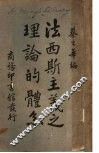 法西斯主義之
理論的體系
商務印書館發行